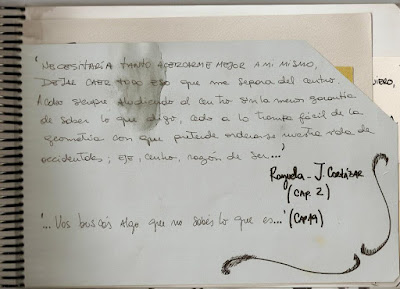 'NECESITARÍA TANTO ACERCARME MEJOR A MI MISMO,
DEJAR CAER TODO ESO que me separa del centro.
Acabo siempre aludiendo al centro sin la menor garantía
de saber lo que digo, cedo a la trampa fácil de la
geometría con que pretende ordenarse nuestra vida de
occidentales; eje, centro, razón de ser...'
Rayuela - J. Cortázar
(CAP. 2)
'... Vos buscás algo que no sabés lo que es...' (CAP.19)